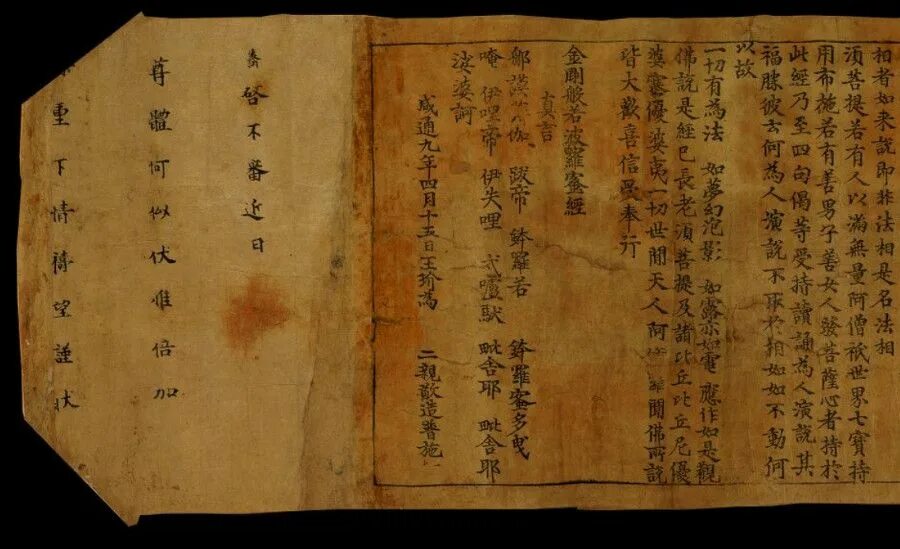 相者如来說即非法相是名法相
湏菩提若有人以滿無量阿僧祇世界七寶持
用布施若有善男子善女人發菩薩心者持於
此經乃至四句偈等受持讀誦為人演說其
福勝彼云何為人演說不取於相如如不動何
以故
一切有為法 如夢幻泡影 如露亦如電 應作如是觀
佛說是經已長老湏菩提及諸比丘比丘尼優
婆塞優婆夷一切世間天人阿羅聞佛所說
皆大歡喜信受奉行
金剛般若波羅蜜經
真言
那謨伽 跋帝 鉢羅若 鉢羅蜜多曳
唵 伊哩帝 伊失哩 戍嚧馱 毗舍耶 毗舍耶
娑婆訶
咸通九年四月十五日王玠為 二親敬造普施
啓不審近日
尊體何似伏惟倍加
重下情禱望謹狀